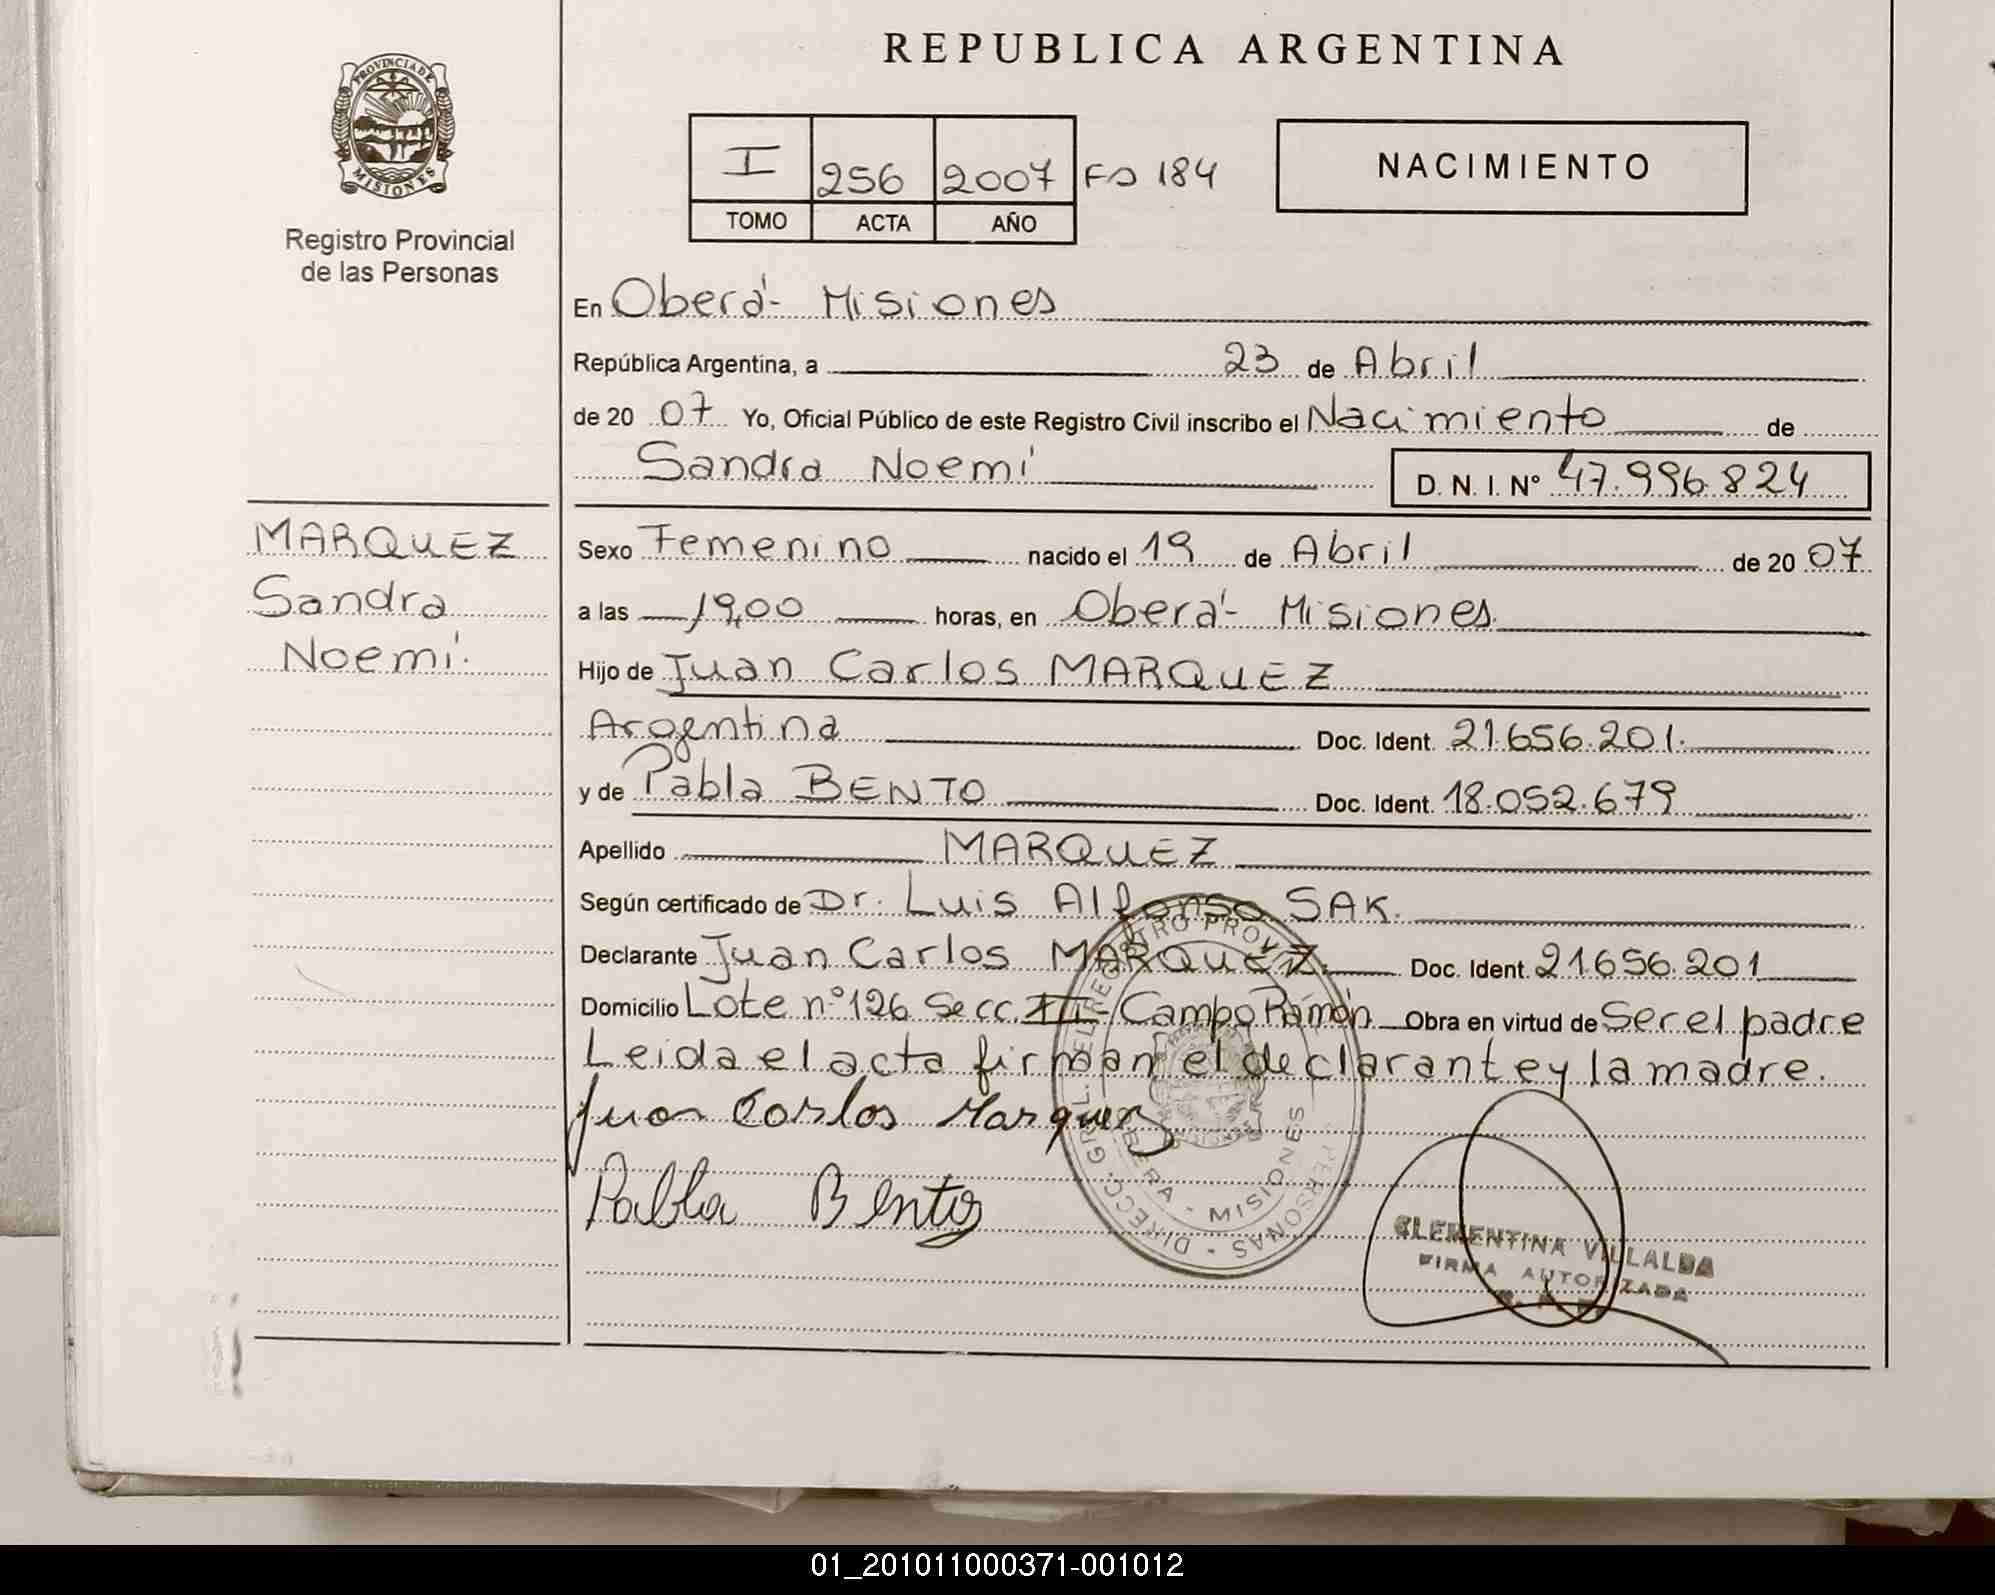 REPUBLICA ARGENTINA
PROVINCIA DE MISIONES
Registro Provincial
de las Personas
I 256 2007 Fo 184
TOMO ACTA AÑO
NACIMIENTO
En Oberá- Misiones
República Argentina, a 23 de Abril
de 20 07 Yo, Oficial Público de este Registro Civil inscribo el Nacimiento de
Sandra Noemí D. N. I. N° 47.996.824
MARQUEZ
Sandra
Noemí.
Sexo Femenino nacido el 19 de Abril de 20 07
a las 19,00 horas, en Oberá- Misiones.
Hijo de Juan Carlos MARQUEZ
Argentina Doc. Ident. 21.656.201.
y de Pabla BENTO Doc. Ident. 18.052.679
Apellido MARQUEZ
Según certificado de Dr. Luis Alfonso SAK.
Declarante Juan Carlos MARQUEZ. Doc. Ident. 21.656.201
Domicilio Lote n° 126 Secc. - Campo Ramón Obra en virtud de Ser el padre
Leida el acta firman el declarante y la madre.
Juan Carlos Marquez
Pabla Bento
DIRECC. GRAL. DEL REGISTRO PROVINCIAL PERSONAS
OBERA - MISIONES
CLEMENTINA VILLALBA
FIRMA AUTORIZADA
01_201011000371-001012